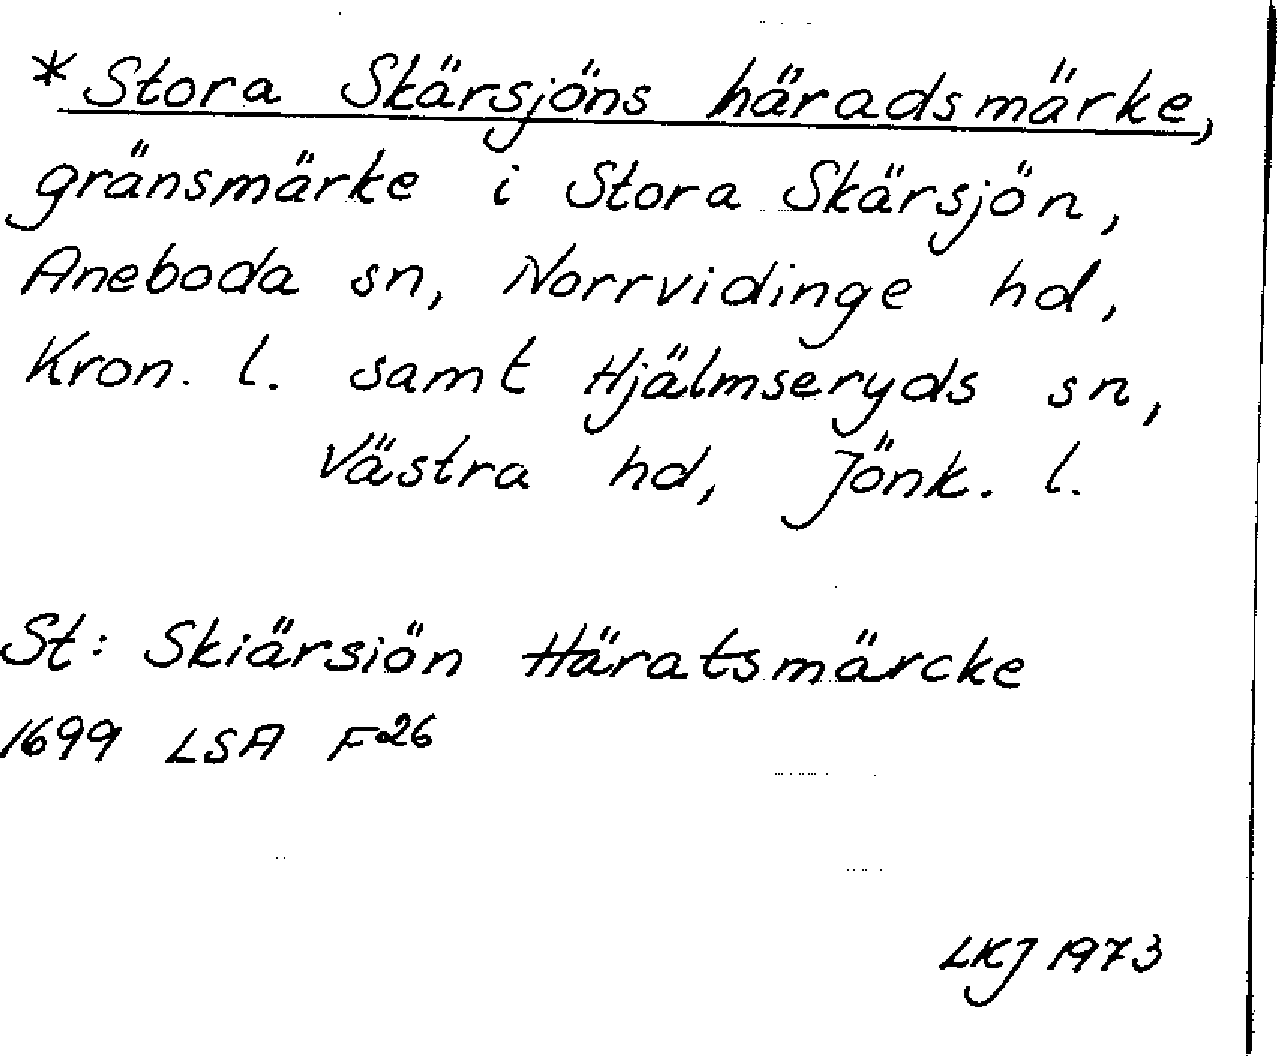 *Stora Skärsjöns häradsmärke,
gränsmärke i Stora Skärsjön,
Aneboda sn, Norrvidinge hd,
Kron. l. samt Hjälmseryds sn,
Västra hd, Jönk. l.
St: Skiärsiön Häratsmärcke
1699 LSA F26
LKJ 1973